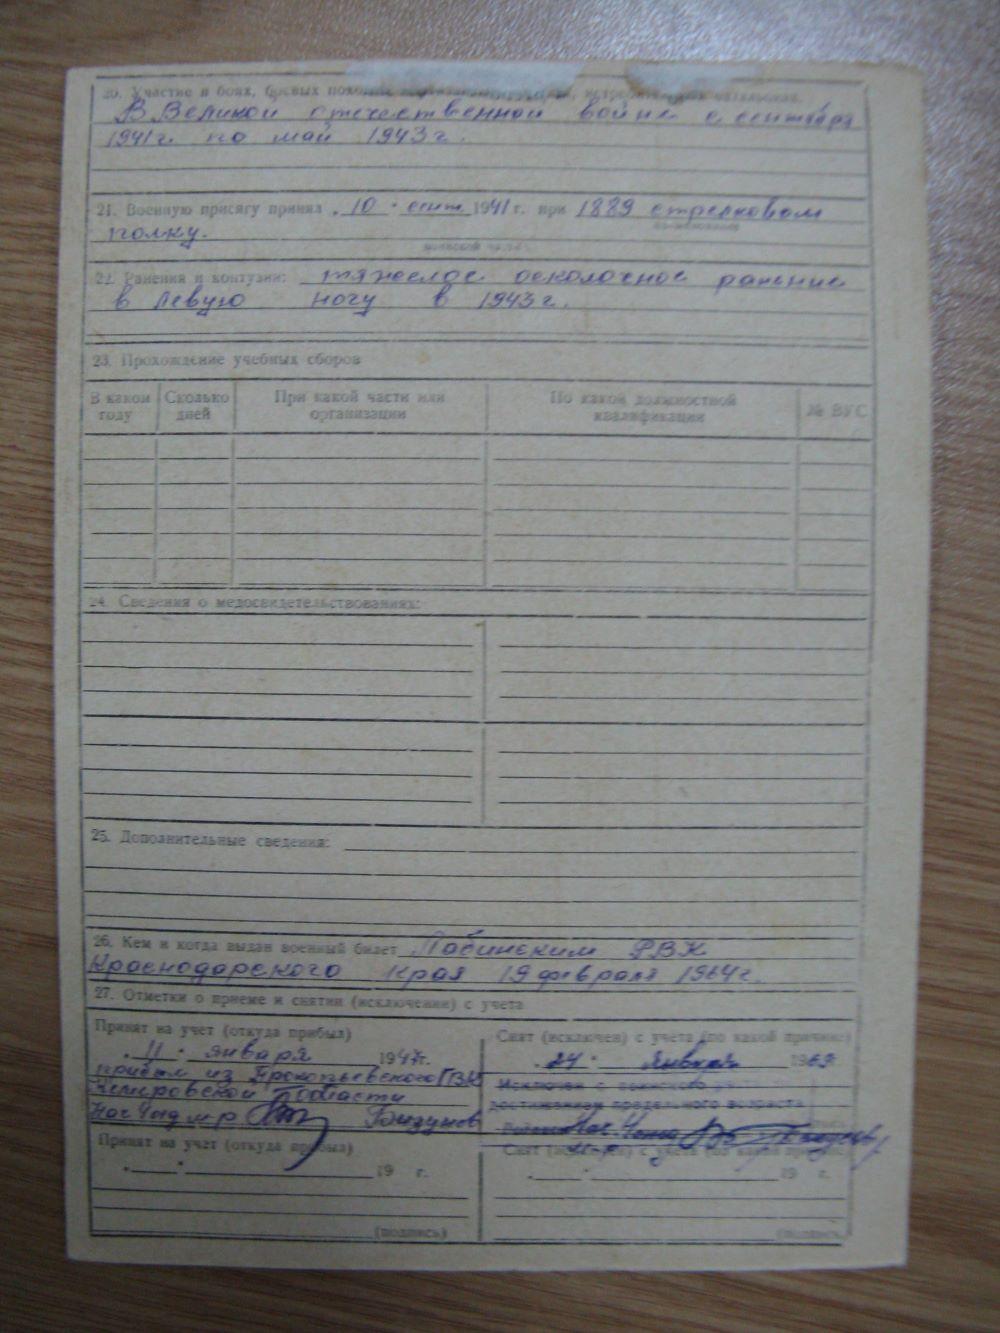 20. Участие в боях, боевых походах
В Великой отечественной войне с сентября
1941 г. по май 1943 г.
21. Военную присягу принял „10" сент. 1941 г. при 1889 стрелковом
(наименование
полку.
воинской части)
22. Ранения и контузии: тяжелое осколочное ранение
в левую ногу в 1943 г.
23. Прохождение учебных сборов
В каком году
Сколько дней
При какой части или организации
По какой должностной квалификации
№ ВУС
24. Сведения о медосвидетельствованиях:
25. Дополнительные сведения:
26. Кем и когда выдан военный билет Лабинским РВК
Краснодарского края 19 февраля 1964 г.
27. Отметки о приеме и снятии (исключении) с учета
Принят на учет (откуда прибыл)
„11" января 1947 г.
прибыл из Прокопьевского ГВК
Кемеровской области
Снят (исключен) с учета (по какой причине)
„24" января
Исключен с воинского учета по
достижении предельного возраста
Принят на учет (откуда прибыл)
„ " 19 г.
(подпись)
Снят (исключен) с учета (по какой причине)
„ " 19 г.
(подпись)